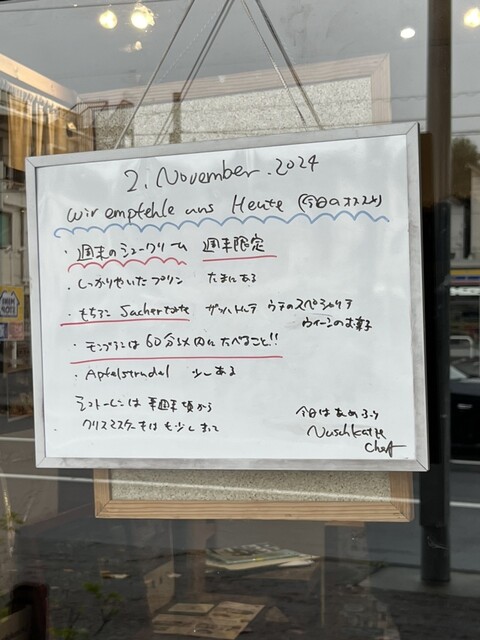 2. November. 2024
wir empfehle uns Heute (今日のオススメ)
・週末のシュークリーム 週末限定
・しっかりやいたプリン たまにある
・もちろん Sachertorte ザッハトルテ ウチのスペシャリテ
ウィーンのお菓子
・モンブランは60分以内にたべること!!
・Apfelstrudel 少しある
シュトーレンは 来週末頃から
クリスマスケーキはも少しまって
今日はあめふり
Naschkatze
Chef